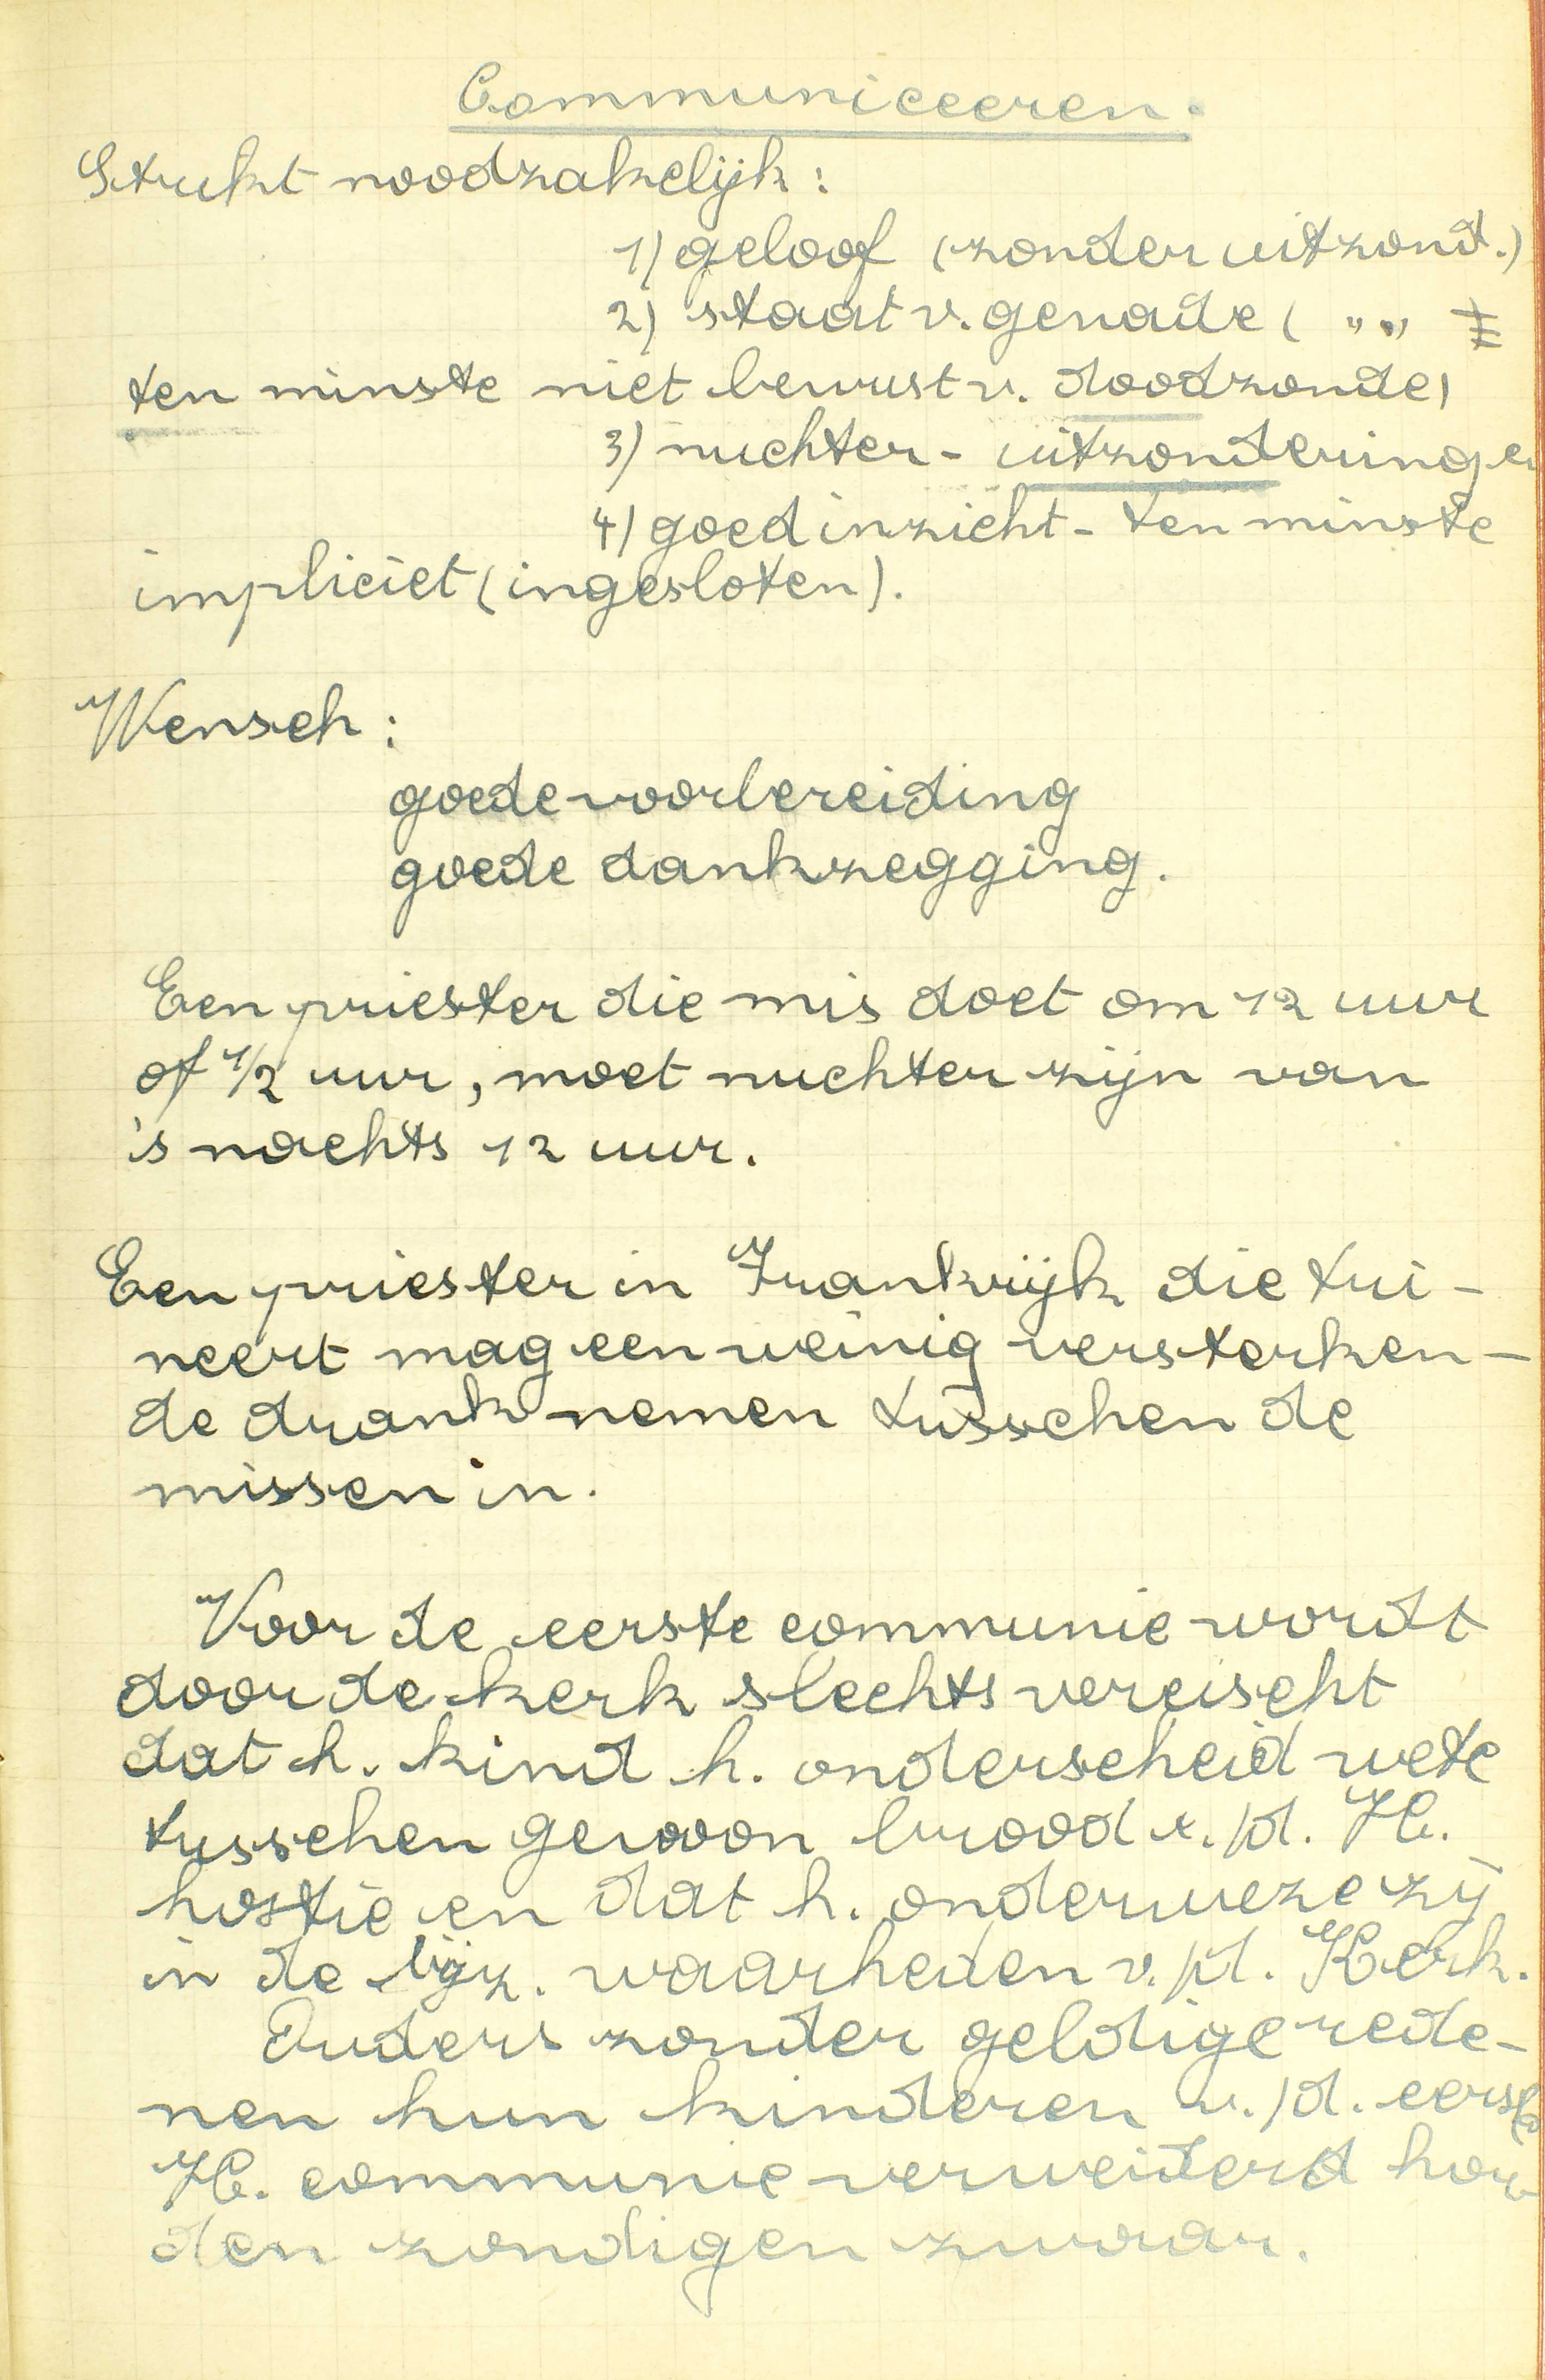 Communiceeren.
Strikt noodzakelijk:
1) geloof (zonder uitzond.)
2) staat v. genade ( „ „
ten minste niet bewust v. doodzonde)
3) nuchter - uitzonderingen
4) goed inzicht - ten minste
impliciet (ingesloten).
Wensch:
goede voorbereiding
goede dankzegging.
Een priester die mis doet om 12 uur
of 1/2 uur, moet nuchter zijn van
's nachts 12 uur.
Een priester in Frankrijk die tri-
neert mag een weinig versterken-
de drank nemen tusschen de
missen in.
Voor de eerste communie wordt
door de kerk slechts vereischt
dat h. kind h. onderscheid wete
tusschen gewoon brood e./d. H.
hostie en dat h. onderweze zij
in de bijz. waarheden v./d. Kerk.
Ouders zonder geldige rede-
nen hun kinderen v./d. eerste
H. communie verweiderd hou-
den zondigen zwaar.